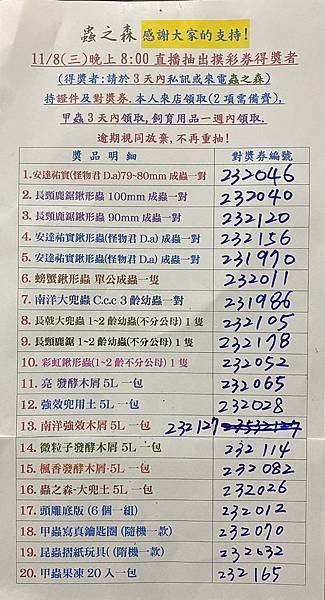 蟲之森 感謝大家的支持!
11/8(三)晚上 8:00 直播抽出摸彩券得獎者
(得獎者:請於 3 天內私訊或來電蟲之森)
持證件及對獎券.本人來店領取(2 項需備齊),
甲蟲 3 天內領取,飼育用品一週內領取.
逾期視同放棄,不再重抽!
獎品明細 對獎券編號
1.安達祐實(怪物君 D.a)79~80mm 成蟲一對 232046
2. 長頸鹿鋸鍬形蟲 100mm 成蟲一對 232040
3. 長頸鹿鋸鍬形蟲 90mm 成蟲一對 232120
4. 安達祐實鍬形蟲(怪物君 D.a) 成蟲一對 232156
5. 安達祐實鍬形蟲(怪物君 D.a) 成蟲一對 231970
6. 螃蟹鍬形蟲 單公成蟲一隻 232011
7.南洋大兜蟲 C.c.c 3 齡幼蟲一對 231986
8.長戟大兜蟲 1~2 齡幼蟲(不分公母) 1 隻 232105
9.長頸鹿鋸 1~2 齡幼蟲(不分公母) 1 隻 232178
10.彩虹鍬形蟲(1~2 齡不分公母) 1 隻 232052
11. 亮 發酵木屑 5L 一包 232065
12. 強效兜用土 5L 一包 232028
13. 南洋強效木屑 5L 一包 232127
14. 微粒子發酵木屑 5L 一包 232114
15. 楓香發酵木屑- 5L 一包 232082
16. 蟲之森-大兜土 5L 一包 232026
17. 頭雕底版 (6 個一組) 232012
18. 甲蟲寫真鑰匙圈 (隨機一款) 232070
19. 昆蟲摺紙玩具( (隋機一款) 232032
20. 甲蟲果凍 20 入一包 232165